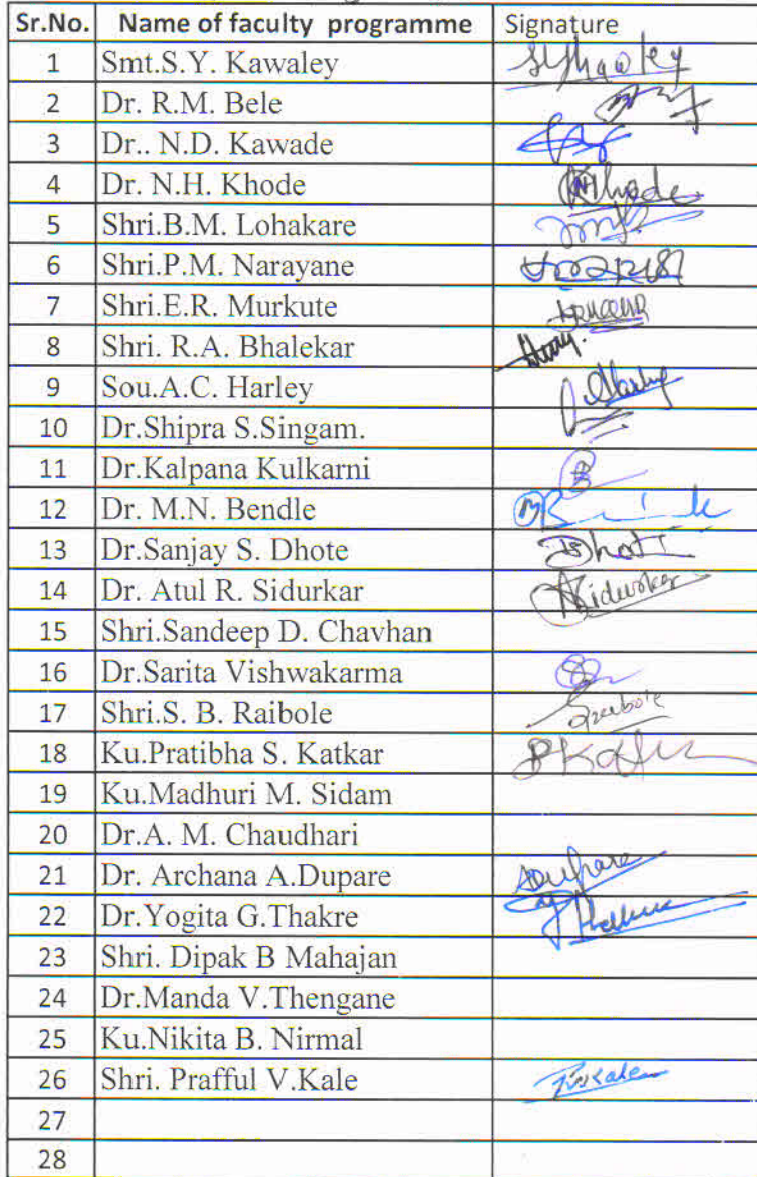 Sr.No. Name of faculty programme Signature
1 Smt.S.Y. Kawaley
2 Dr. R.M. Bele
3 Dr.. N.D. Kawade
4 Dr. N.H. Khode
5 Shri.B.M. Lohakare
6 Shri.P.M. Narayane
7 Shri.E.R. Murkute
8 Shri. R.A. Bhalekar
9 Sou.A.C. Harley
10 Dr.Shipra S.Singam.
11 Dr.Kalpana Kulkarni
12 Dr. M.N. Bendle
13 Dr.Sanjay S. Dhote
14 Dr. Atul R. Sidurkar
15 Shri.Sandeep D. Chavhan
16 Dr.Sarita Vishwakarma
17 Shri.S. B. Raibole
18 Ku.Pratibha S. Katkar
19 Ku.Madhuri M. Sidam
20 Dr.A. M. Chaudhari
21 Dr. Archana A.Dupare
22 Dr.Yogita G.Thakre
23 Shri. Dipak B Mahajan
24 Dr.Manda V.Thengane
25 Ku.Nikita B. Nirmal
26 Shri. Prafful V.Kale
27
28